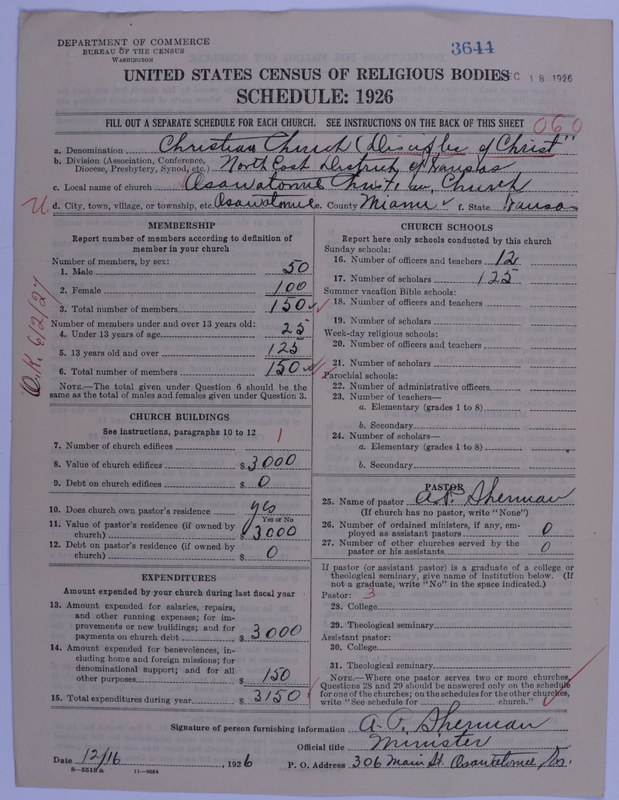 DEPARTMENT OF COMMERCE
BUREAU OF THE CENSUS
WASHINGTON
3644
UNITED STATES CENSUS OF RELIGIOUS BODIES
EC 18 1926
SCHEDULE: 1926
FILL OUT A SEPARATE SCHEDULE FOR EACH CHURCH. SEE INSTRUCTIONS ON THE BACK OF THIS SHEET
060
a. Denomination Christian Church (Disciples of Christ"
b. Division (Association, Conference, Diocese, Presbytery, Synod, etc.) North East District of Kansas
c. Local name of church Osawatomie Christian Church
d. City, town, village, or township, etc. Osawatomie e. County Miami f. State Kansas
U.
O.K. 6/2/27
MEMBERSHIP
Report number of members according to definition of
member in your church
Number of members, by sex:
1. Male 50
2. Female 100
3. Total number of members 150
Number of members under and over 13 years old:
4. Under 13 years of age 25
5. 13 years old and over 125
6. Total number of members 150
NOTE.—The total given under Question 6 should be
same as the total of males and females given under Question 3.
CHURCH BUILDINGS
See instructions, paragraphs 10 to 12
7. Number of church edifices 1
8. Value of church edifices $ 3000
9. Debt on church edifices $ 0
10. Does church own pastor's residence yes
Yes or No
11. Value of pastor's residence (if owned by
church) $ 3000
12. Debt on pastor's residence (if owned by
church) $ 0
EXPENDITURES
Amount expended by your church during last fiscal year
13. Amount expended for salaries, repairs,
and other running expenses; for im-
provements or new buildings; and for
payments on church debt $ 3000
14. Amount expended for benevolences, in-
cluding home and foreign missions; for
denominational support; and for all
other purposes $ 150
15. Total expenditures during year $ 3150
CHURCH SCHOOLS
Report here only schools conducted by this church
Sunday schools:
16. Number of officers and teachers 12
17. Number of scholars 125
Summer vacation Bible schools:
18. Number of officers and teachers
19. Number of scholars
Week-day religious schools:
20. Number of officers and teachers
21. Number of scholars
Parochial schools:
22. Number of administrative officers
23. Number of teachers—
a. Elementary (grades 1 to 8)
b. Secondary
24. Number of scholars—
a. Elementary (grades 1 to 8)
b. Secondary
PASTOR
25. Name of pastor A.P. Sherman
(If church has no pastor, write "None")
26. Number of ordained ministers, if any, em-
ployed as assistant pastors 0
27. Number of other churches served by the
pastor or his assistants 0
If pastor (or assistant pastor) is a graduate of a college or
theological seminary, give name of institution below. (If
not a graduate, write "No" in the space indicated.)
Pastor: 3
28. College
29. Theological seminary
Assistant pastor:
30. College
31. Theological seminary
NOTE.—Where one pastor serves two or more churches,
Questions 28 and 29 should be answered only on the schedule
for one of the churches; on the schedules for the other churches,
write "See schedule for church."
Signature of person furnishing information A. P. Sherman
Official title Minister
Date 12/16, 1926 P. O. Address 306 Main St. Osawatomie, Ks.
8-5518a 11-9684